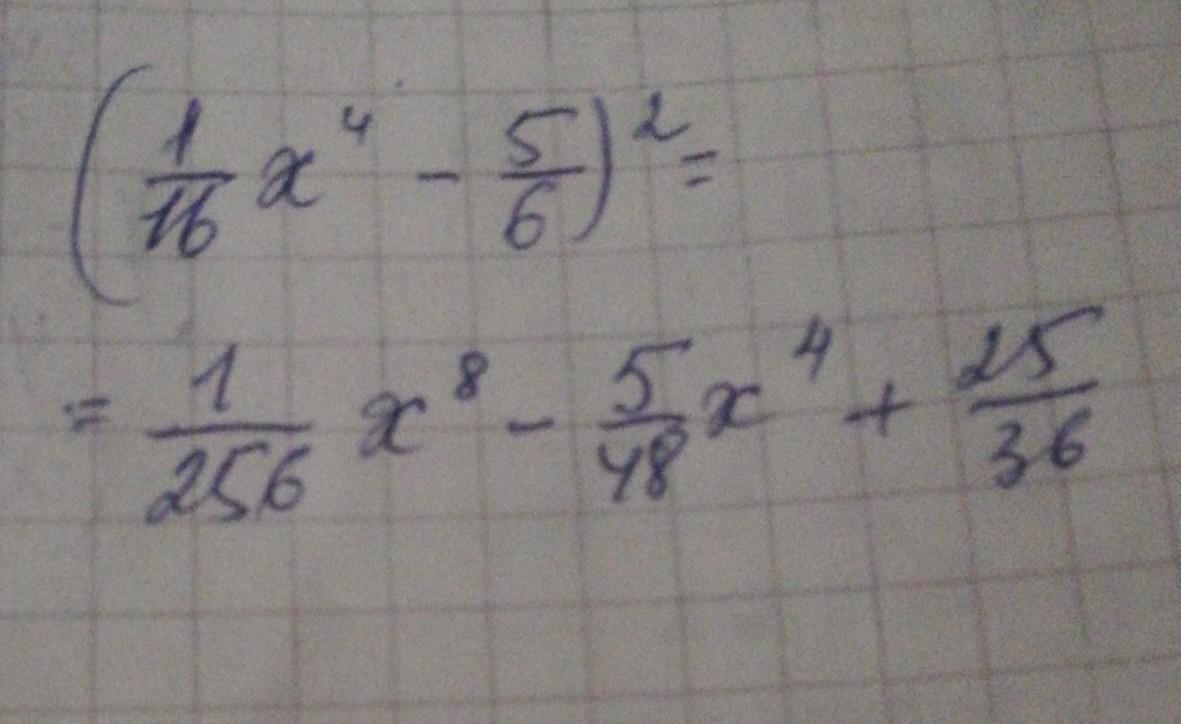 (1/16 x⁴ - 5/6)² =
= 1/256 x⁸ - 5/48 x⁴ + 25/36